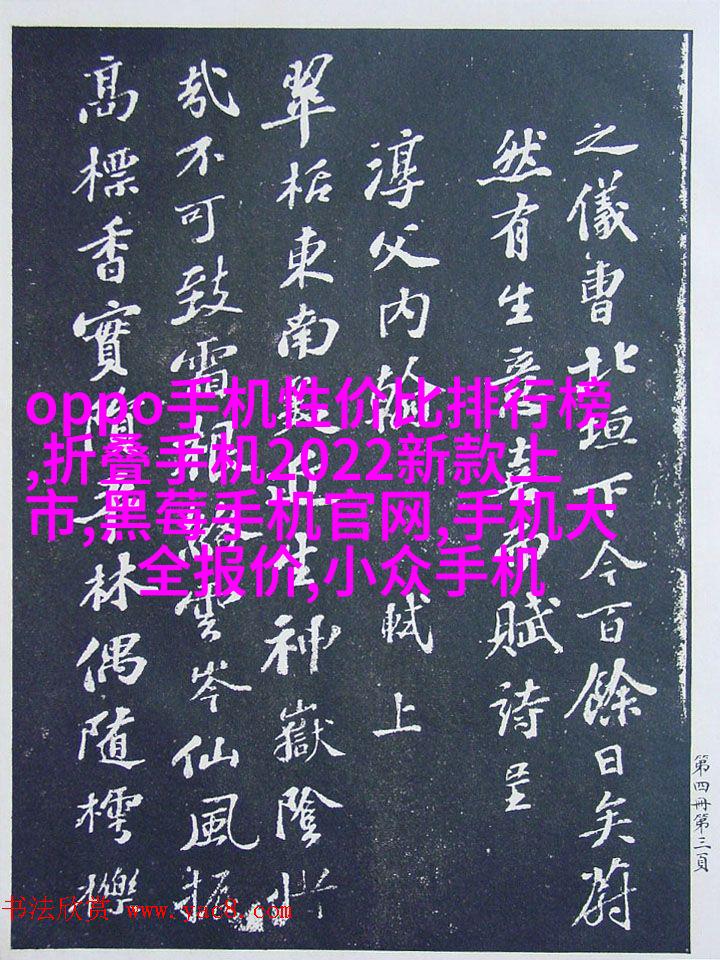 之儀曹北垣下今百餘日矣蔚
然有生意喜而賦詩呈
淳父内翰 軾上
翠栝東南美近生神嶽陰惜
哉不可致霜根絡雲岑仙風振
高標香實隕平林偶随樗櫟
oppo手机性价比排行榜
,折叠手机2022新款上
市,黑莓手机官网,手机大
全报价,小众手机
第四冊第三頁
书法欣赏 www.yac8.com